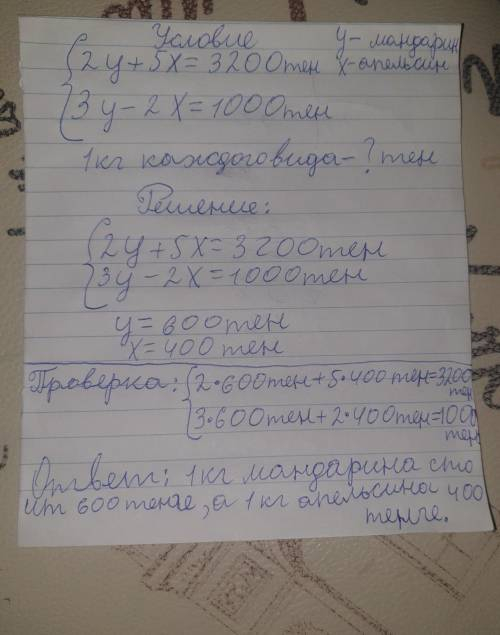 Условие y - мандарин
{2y+5x=3200тен x-апельсин
{3y-2x=1000тен
1кг каждого вида-? тен
Решение:
{2y+5x=3200тен
{3y-2x=1000тен
y=600тен
x=400тен
Проверка: {2·600тен+5·400тен=3200тен
{3·600тен+2·400тен=1000тен
Ответ: 1кг мандарина сто
ит 600 тенге, а 1 кг апельсина 400
тенге.